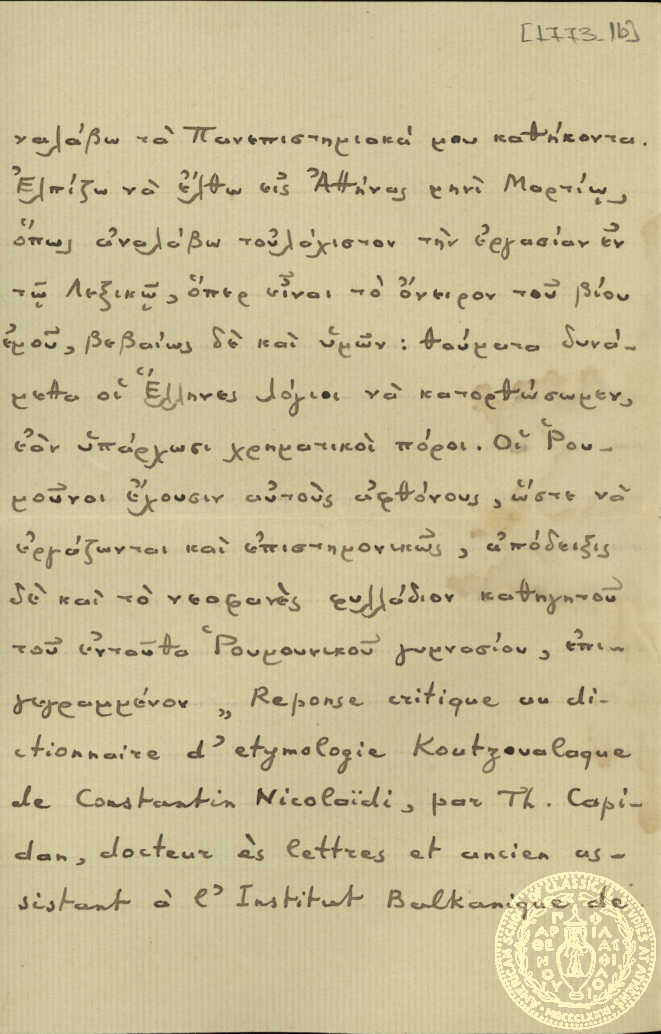 [1773-1b]
ναλάβω τὰ Πανεπιστημιακά μου καθήκοντα.
Ἐλπίζω νὰ ἔλθω εἰς Ἀθήνας μηνὶ Μαρτίῳ,
ὅπως ἀναλάβω τοὐλάχιστον τὴν ἐργασίαν ἐν
τῷ Λεξικῷ, ὅπερ εἶναι τὸ ὄνειρον τοῦ βίου
ἐμοῦ, βεβαίως δὲ καὶ ὑμῶν: θαύματα δυνά-
μεθα οἱ Ἕλληνες λόγιοι νὰ κατορθώσωμεν,
ἐὰν ὑπάρχωσι χρηματικοὶ πόροι. Οἱ Ῥου-
μοῦνοι ἔχουσιν αὐτοὺς ἀφθόνους, ὥστε νὰ
ἐργάζωνται καὶ ἐπιστημονικῶς, ἀπόδειξις
δὲ καὶ τὸ νεοφανὲς φυλλάδιον καθηγητοῦ
τοῦ ἐνταῦθα Ῥουμουνικοῦ γυμνασίου, ἐπι-
γεγραμμένον „ Reponse critique au di-
ctionnaire d' etymologie Koutzovalaque
de Constantin Nicolaïdi, par Th. Capi-
dan, docteur ès lettres et ancien as-
sistant à l' Institut Balkanique de
AMERICAN SCHOOL OF CLASSICAL STUDIES AT ATHENS
ΠΑΡΘΕΝΟΥ ΦΙΛΑΣ ΦΙΛΟΙ
MDCCCLXXXI